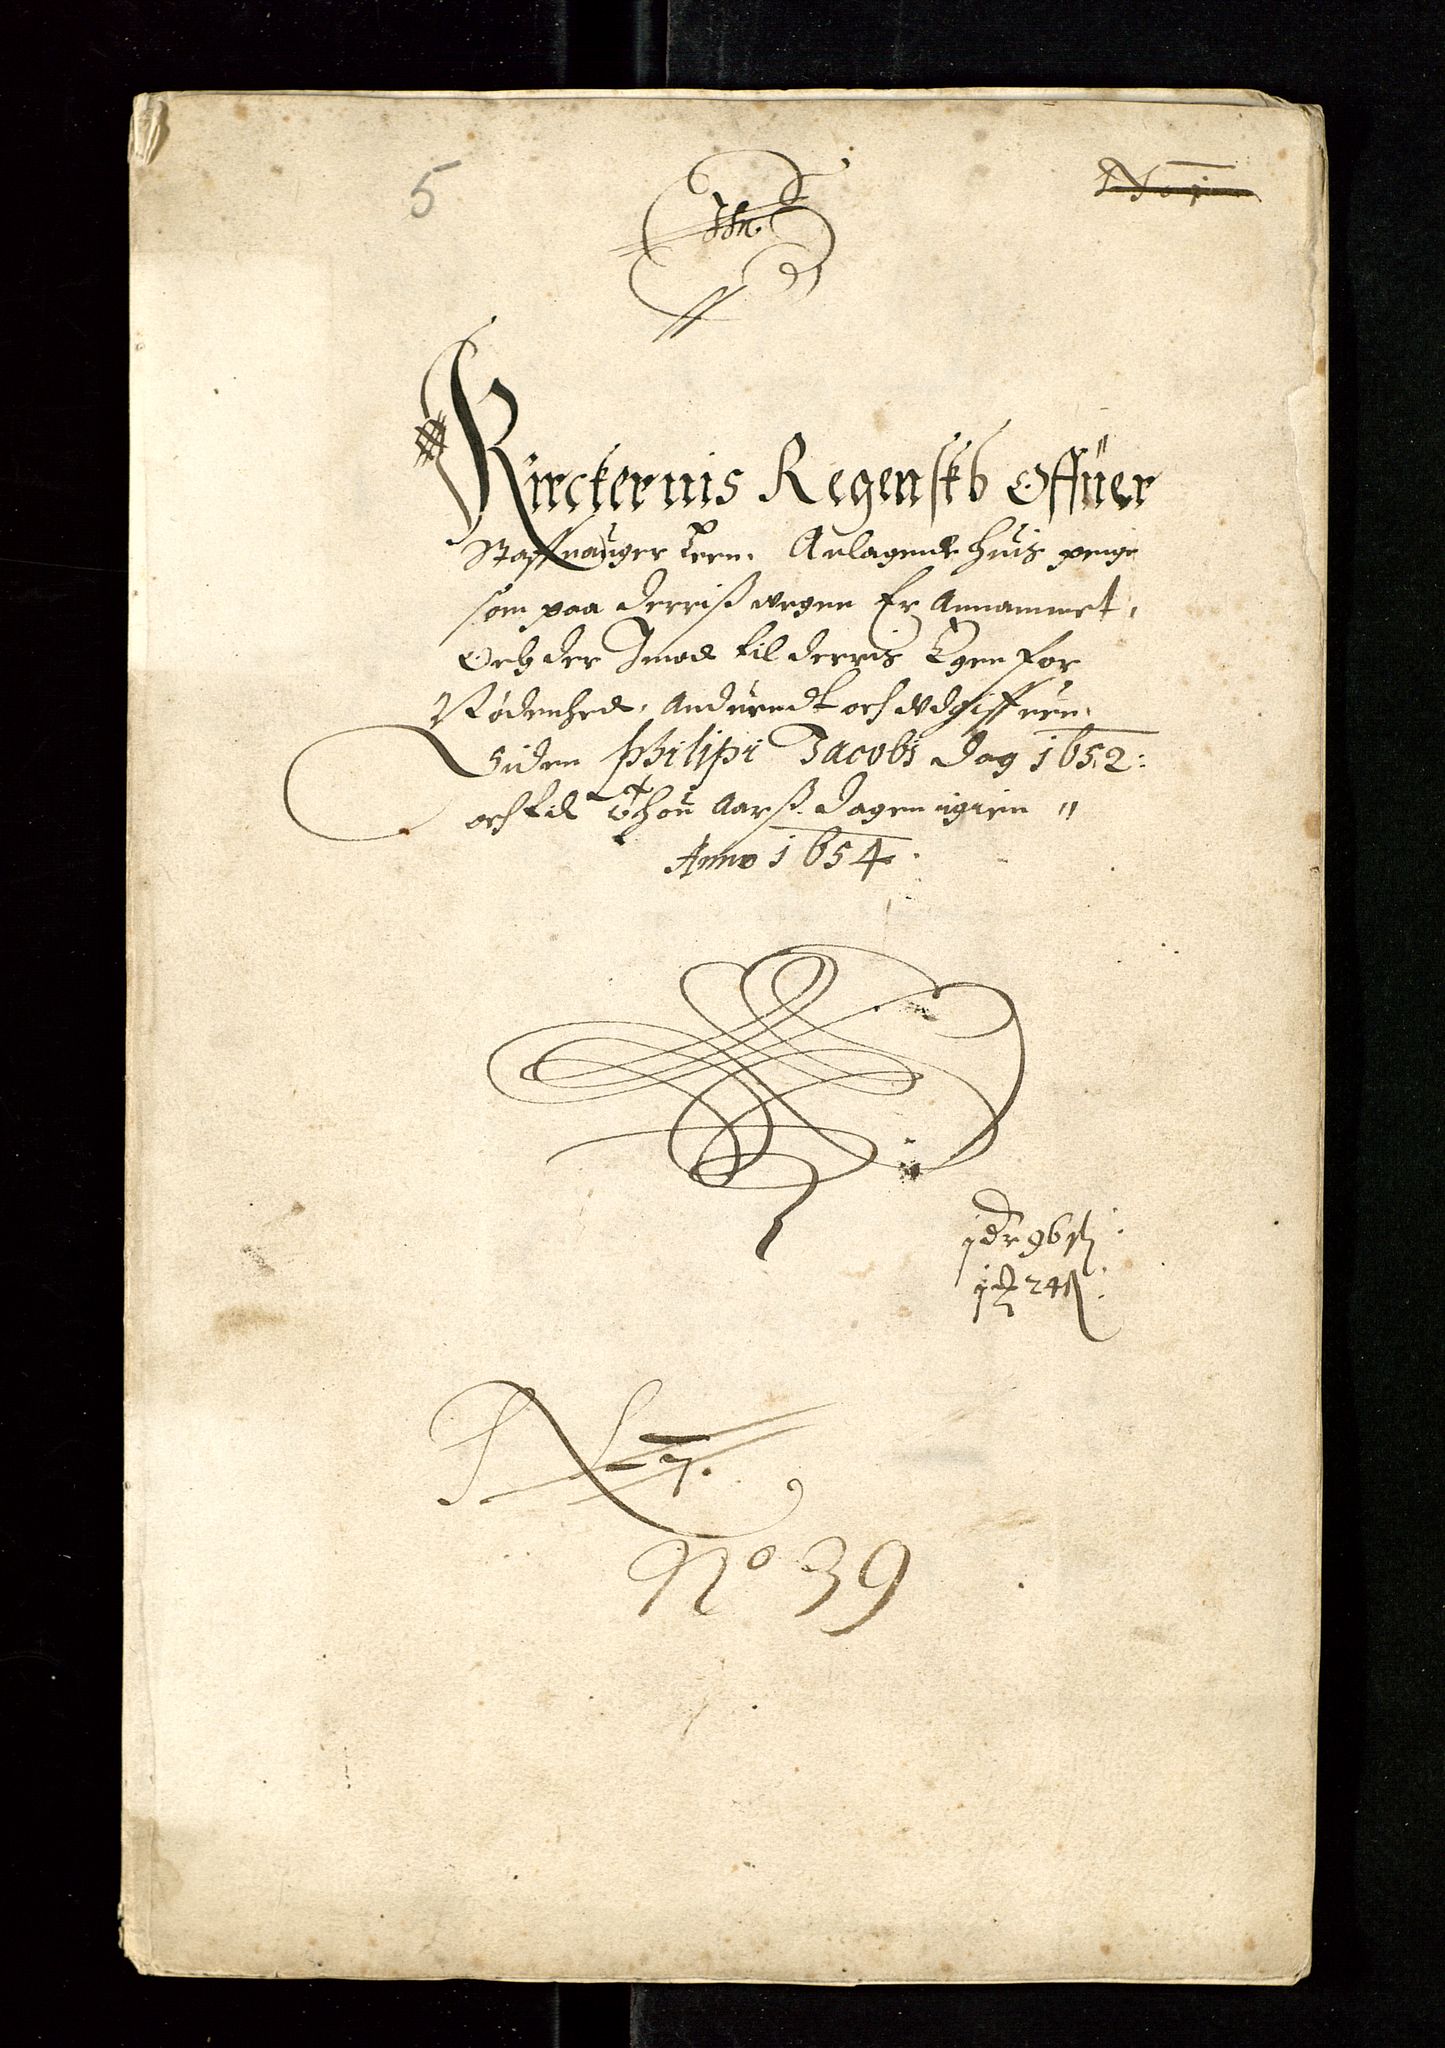 5
No 1
Kirckernis Regenskb Offuer
Staffuanger Leen. Anlagende huis penge
som paa derriß wegne Er Annammet,
Och der Imod til derris Egen for
Nødenhed, anduendt och udgiffuen,
Siden Philipi Jacobi dag 1652:
och til thou Aarß dagen igien "
Anno 1654.
1 dr 96 ß
1 24 ß
7.
No 39